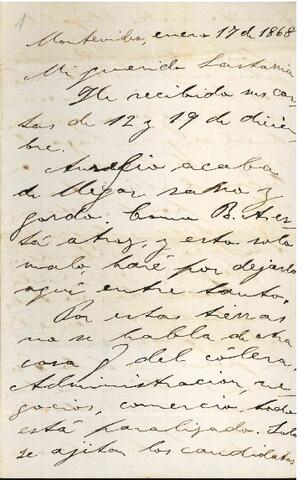 1
Montevideo, enero 17 de 1868
Mi querido Lastarria
He recibido sus car
tas de 12 y 19 de diciem
bre.
Aurelio acaba
de llegar sano y
gordo. Como B. A. es
tá atroz, y esto solo
malo haré por dejarlo
aquí entre tanto.
Por estas tierras
no se habla de otra
cosa q del cólera.
Administracion, ne
gocios, comercio, todo
está paralizado. Solo
se ajitan los candidatos